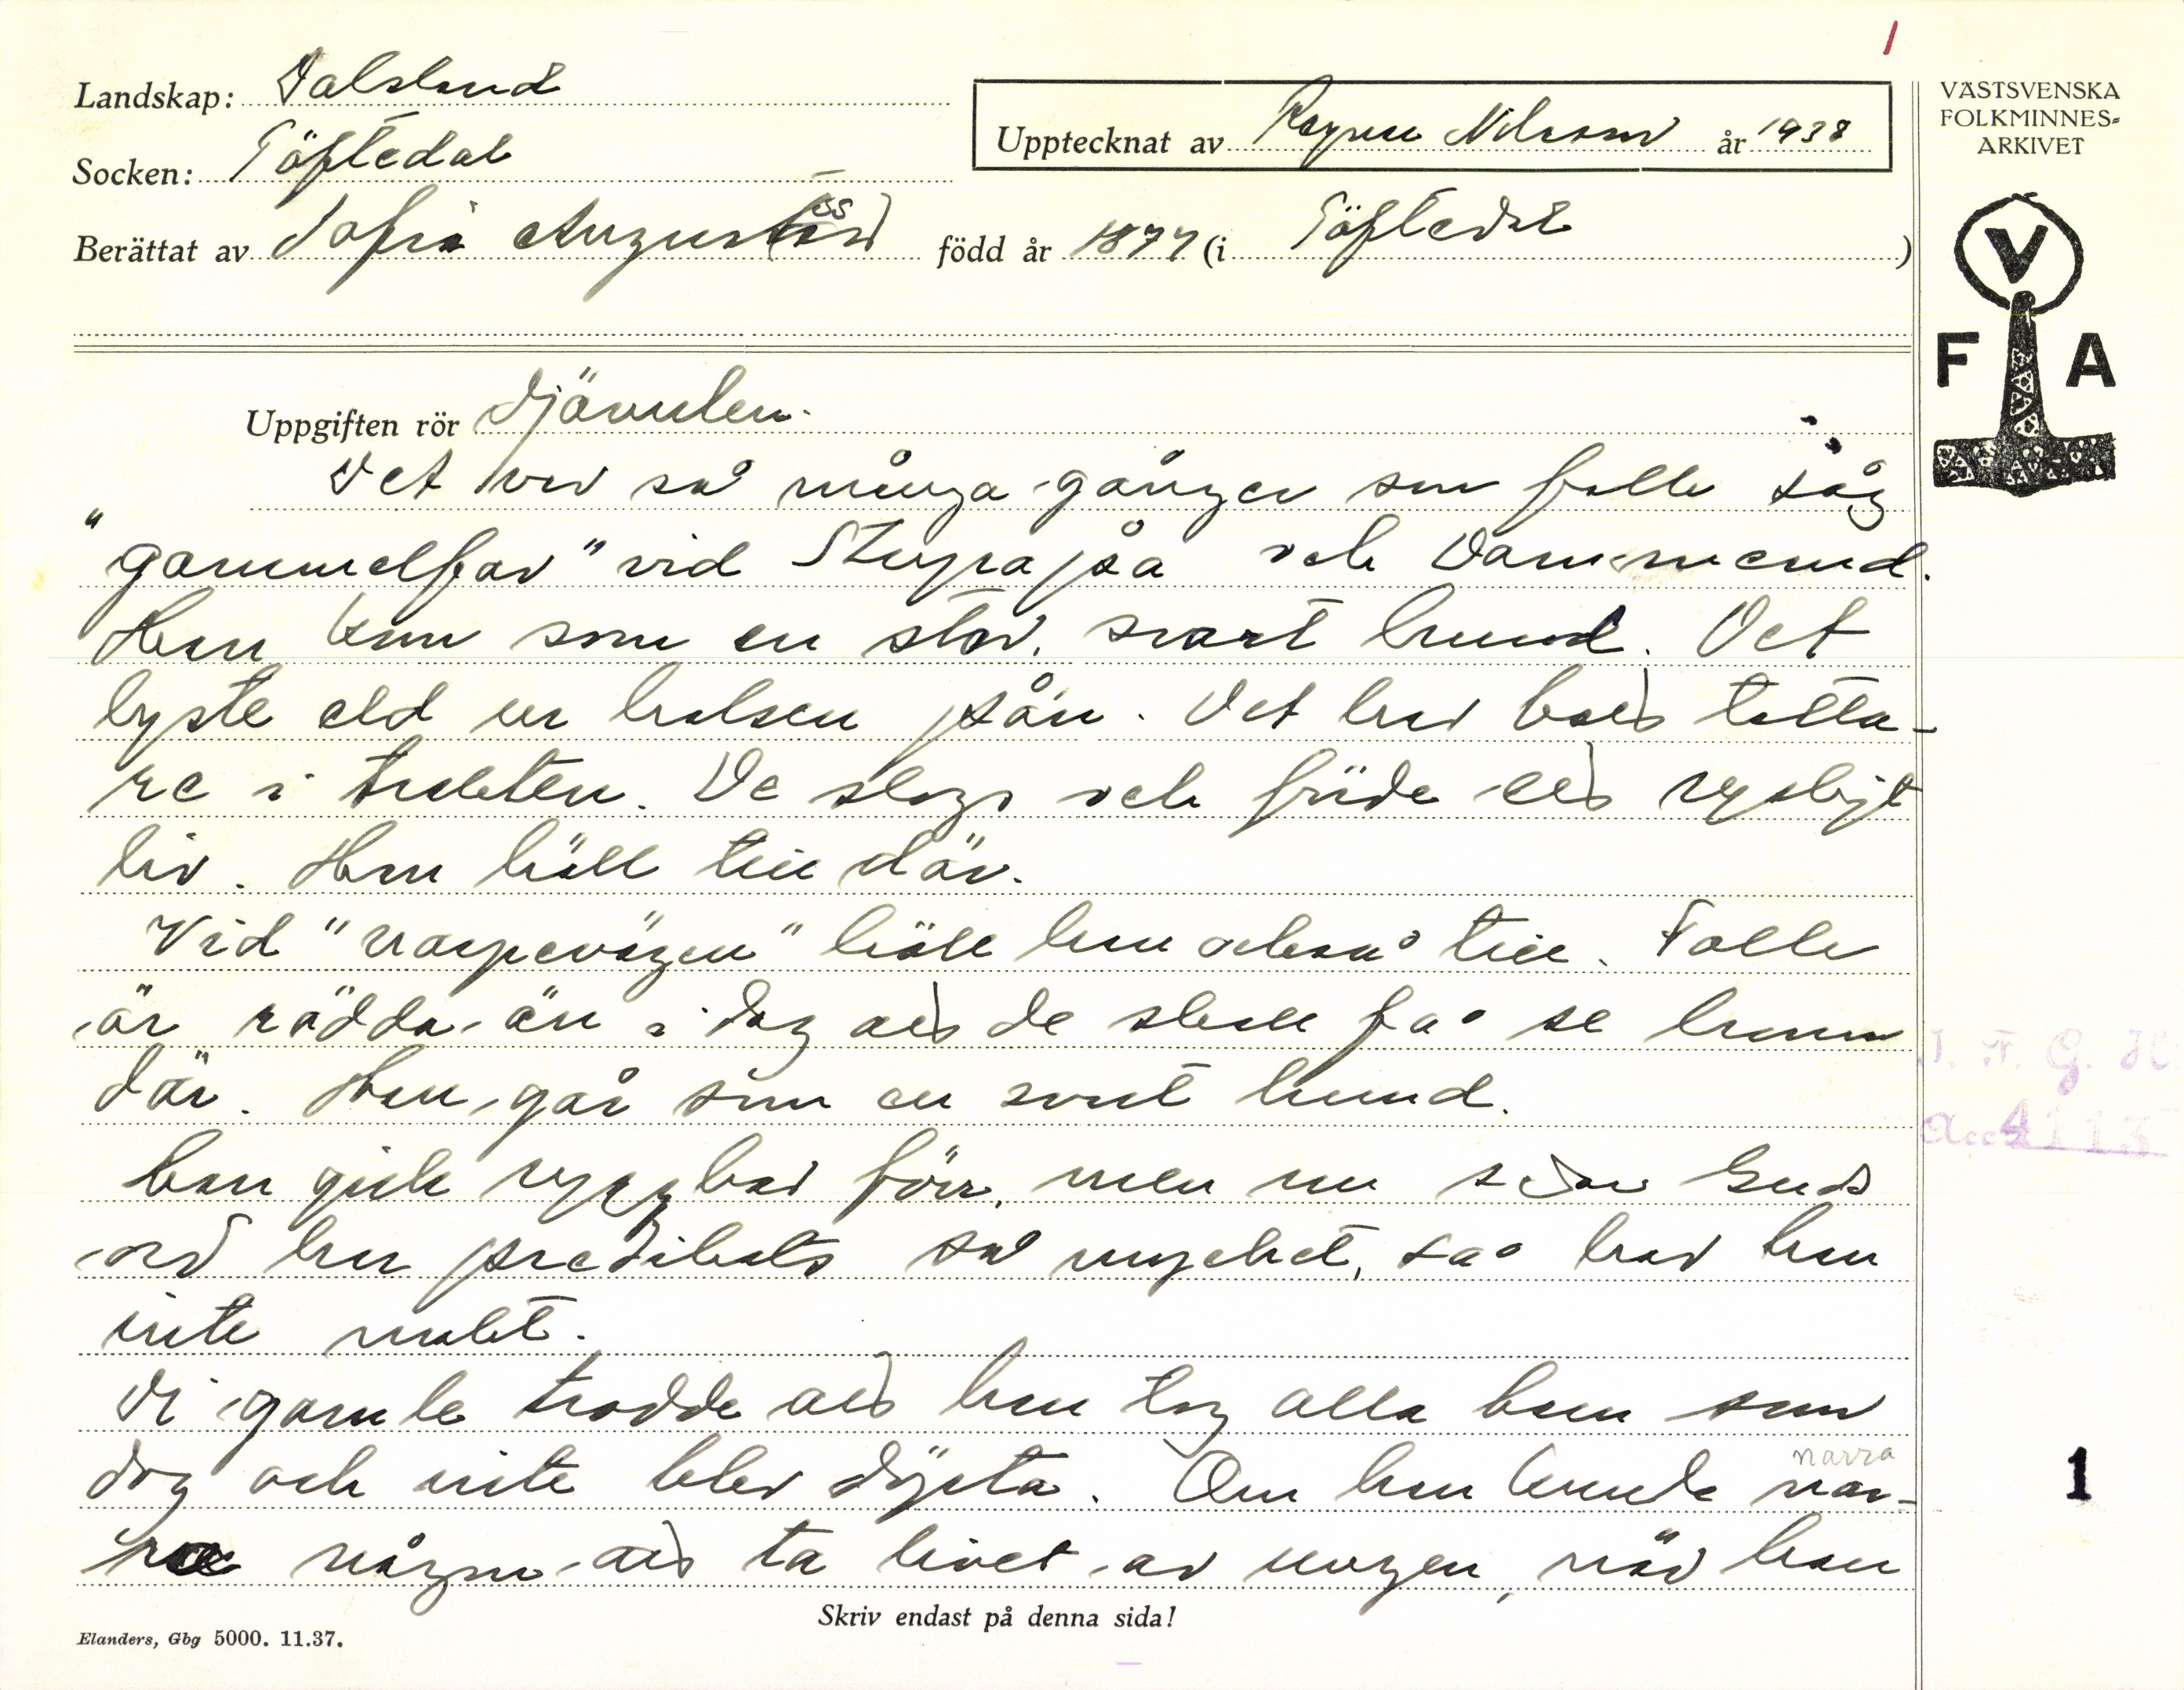 1
Landskap: Dalsland
Upptecknat av Ragnar Nilsson år 1938
VÄSTSVENSKA
FOLKMINNES-
ARKIVET
Socken: Töftedal
Berättat av Sofia född år 1877 (i Töftedal )
V
F A
Uppgiften rör Djävulen.
Det var så många gånger som folk såg
"gammelfar" vid och
Han kom som en stor, svart hund. Det
lyste eld ur halsen på'n. Det har bott tatta-
re i trakten. De slogs och förde ett rysligt
liv. Han höll till där.
Vid "varpevägen" höll han också till. Folk
är rädda än i dag att de skall få se honom
där. Han går som en svart hund.
Han gick uppenbar förr, men nu sedan Guds
ord har predikats så mycket, så har han
inte makt.
Vi gamle trodde att han tog alla barn som
dog och inte blev döpta. Om han kunde nar-
narra
ra någon att ta livet av ungen, när han
I. F. G. H.
Acc 4113
1
Skriv endast på denna sida!
Elanders, Gbg 5000. 11.37.